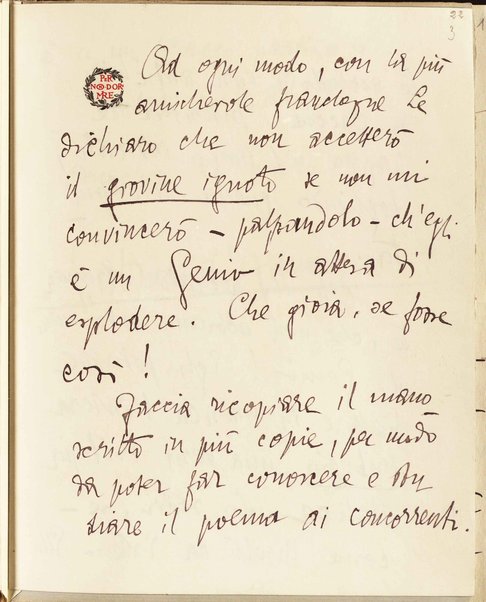 22
3
PER
NON DOR
MIRE
Ad ogni modo, con la più
amichevole franchezza Le
dichiaro che non accetterò
il giovine ignoto se non mi
convincerò – palpandolo – ch'egli
è un Genio in attesa di
esplodere. Che gioia, se fosse
così!
Faccia ricopiare il mano
scritto in più copie, per modo
da poter far conoscere e stu
diare il poema ai concorrenti.